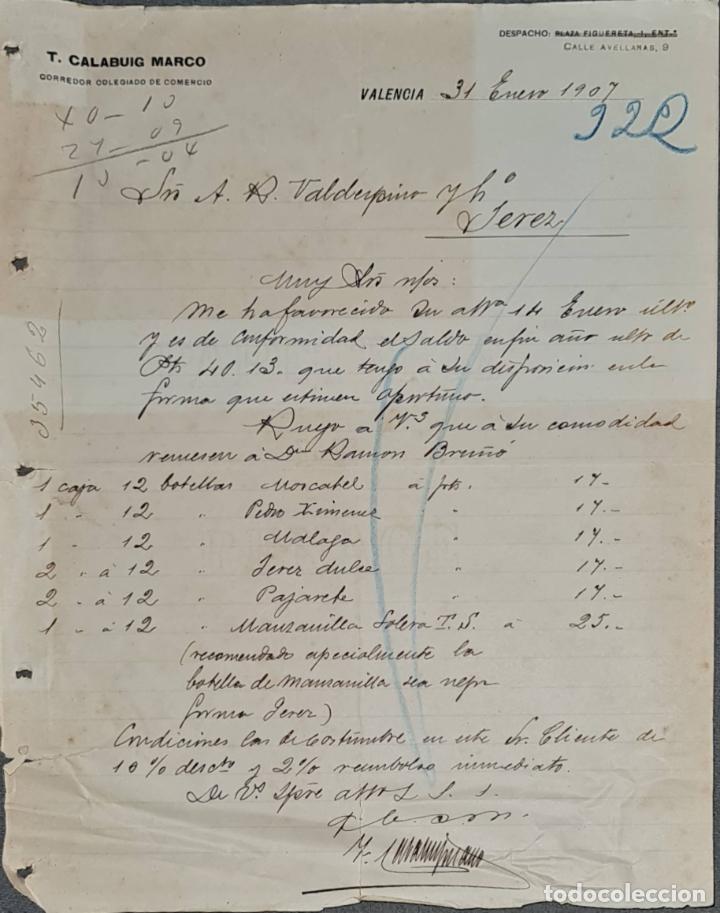 DESPACHO: PLAZA FIGUERETA, 1, ENT.º
CALLE AVELLANAS, 9
T. CALABUIG MARCO
CORREDOR COLEGIADO DE COMERCIO
VALENCIA 31 Enero 1907
40-10
27-09
-04
Srs A. R. Valdespino y hº
Jerez
35462
Muy Srs mios:
Me ha favorecido su atta 14 Enero ulto
y es de conformidad el saldo en fin año ulto de
Pts 40.13. que tengo á su disposicion en la
forma que estimen oportuno.
Ruego a Vs que á su comodidad
remesen á Dn Ramon Bruñó
1 caja 12 botellas Moscatel á pts. 17-
1 " 12 " Pedro Ximenez " 17.-
1 " 12 " Malaga " 17.-
2 " á 12 " Jerez dulce " 17.-
2 " á 12 " Pajarete " 17.-
1 " á 12 " Manzanilla Solera T.S. á 25.-
(recomendado especialmente la
botella de Manzanilla sea negra
forma Jerez)
Condiciones las de costumbre en este Sr. Cliente de
10% descto y 2% reembolso inmediato.
De Vs. Spre atto S. S.
T. Calabuig Marco
todocoleccion